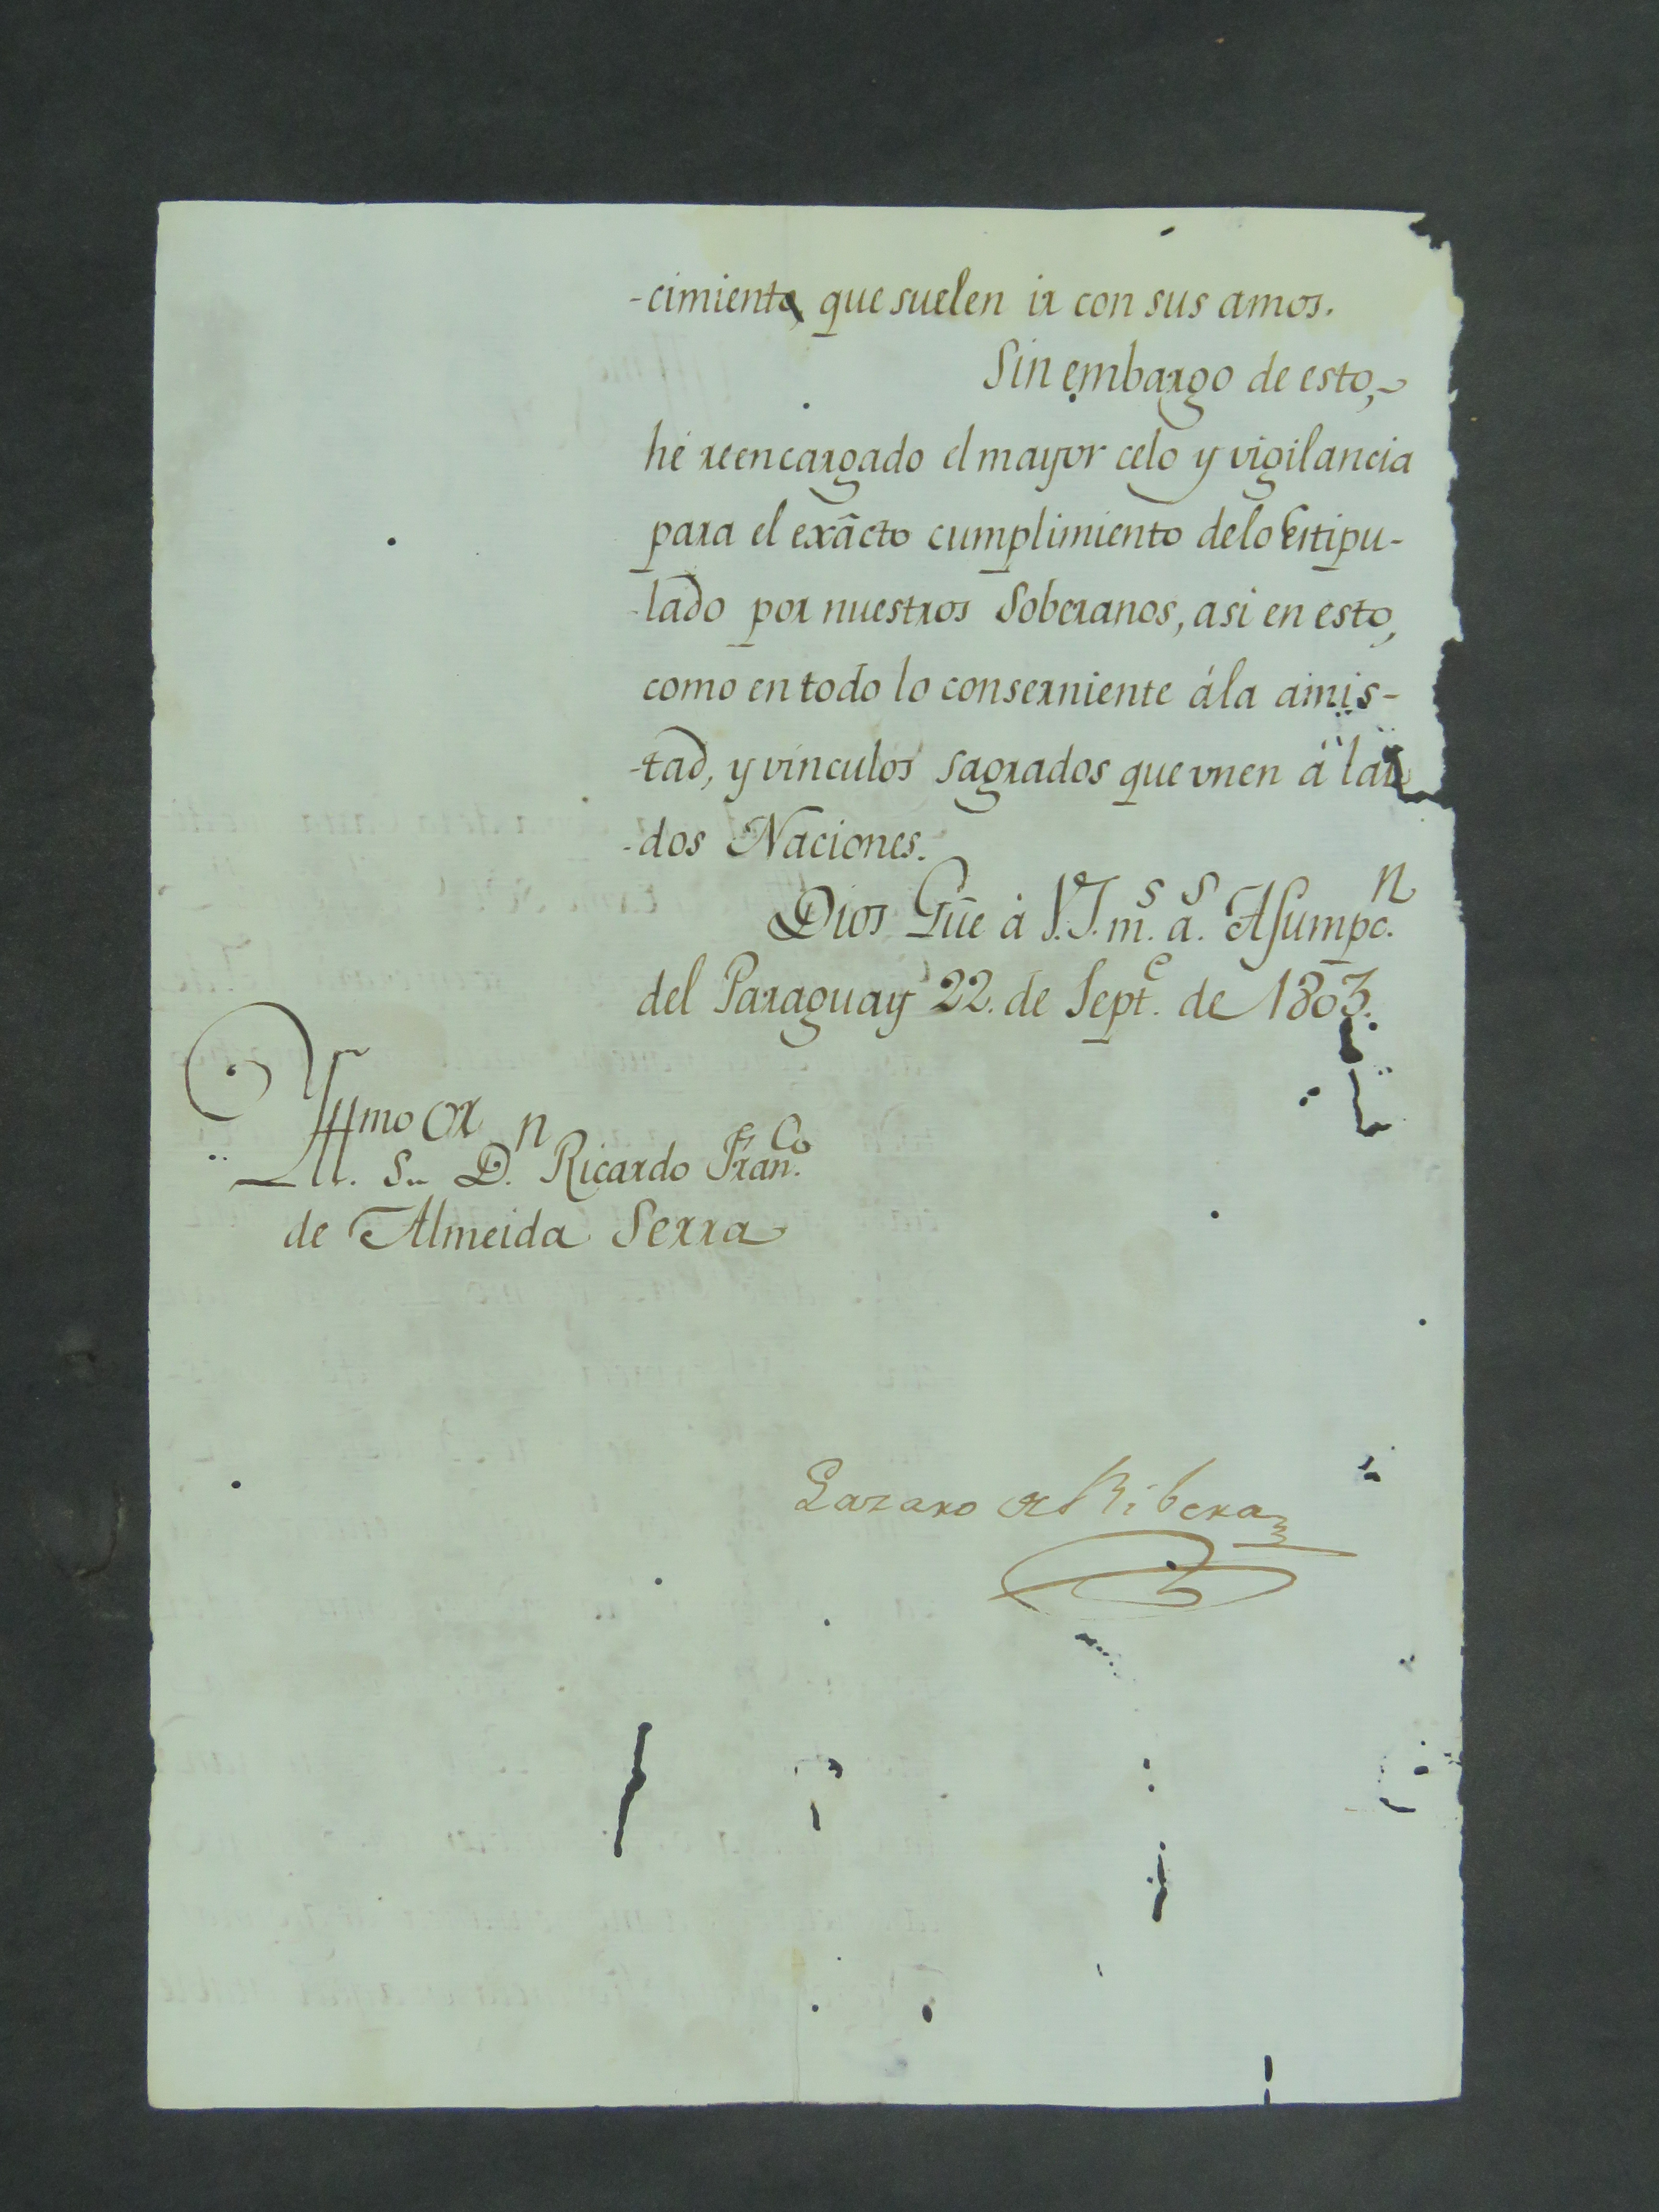 -cimiento, que suelen ir con sus amos.
Sin embargo de esto,
hé reencargado el mayor celo y vigilancia
para el exâcto cumplimiento delo Estipu-
-lado por nuestros Soberanos, asi en esto,
como en todo lo conserniente ála amis-
-tad, y vinculos sagrados que vnen á las
-dos Naciones.
Dios Gûe á V.I. m.s a.s Asumpc.n
del Paraguay 22. de Sept.e de 1803.
Yll.mo S.or D.n Ricardo Fran.co
de Almeida Serra
Lazaro de Ribera